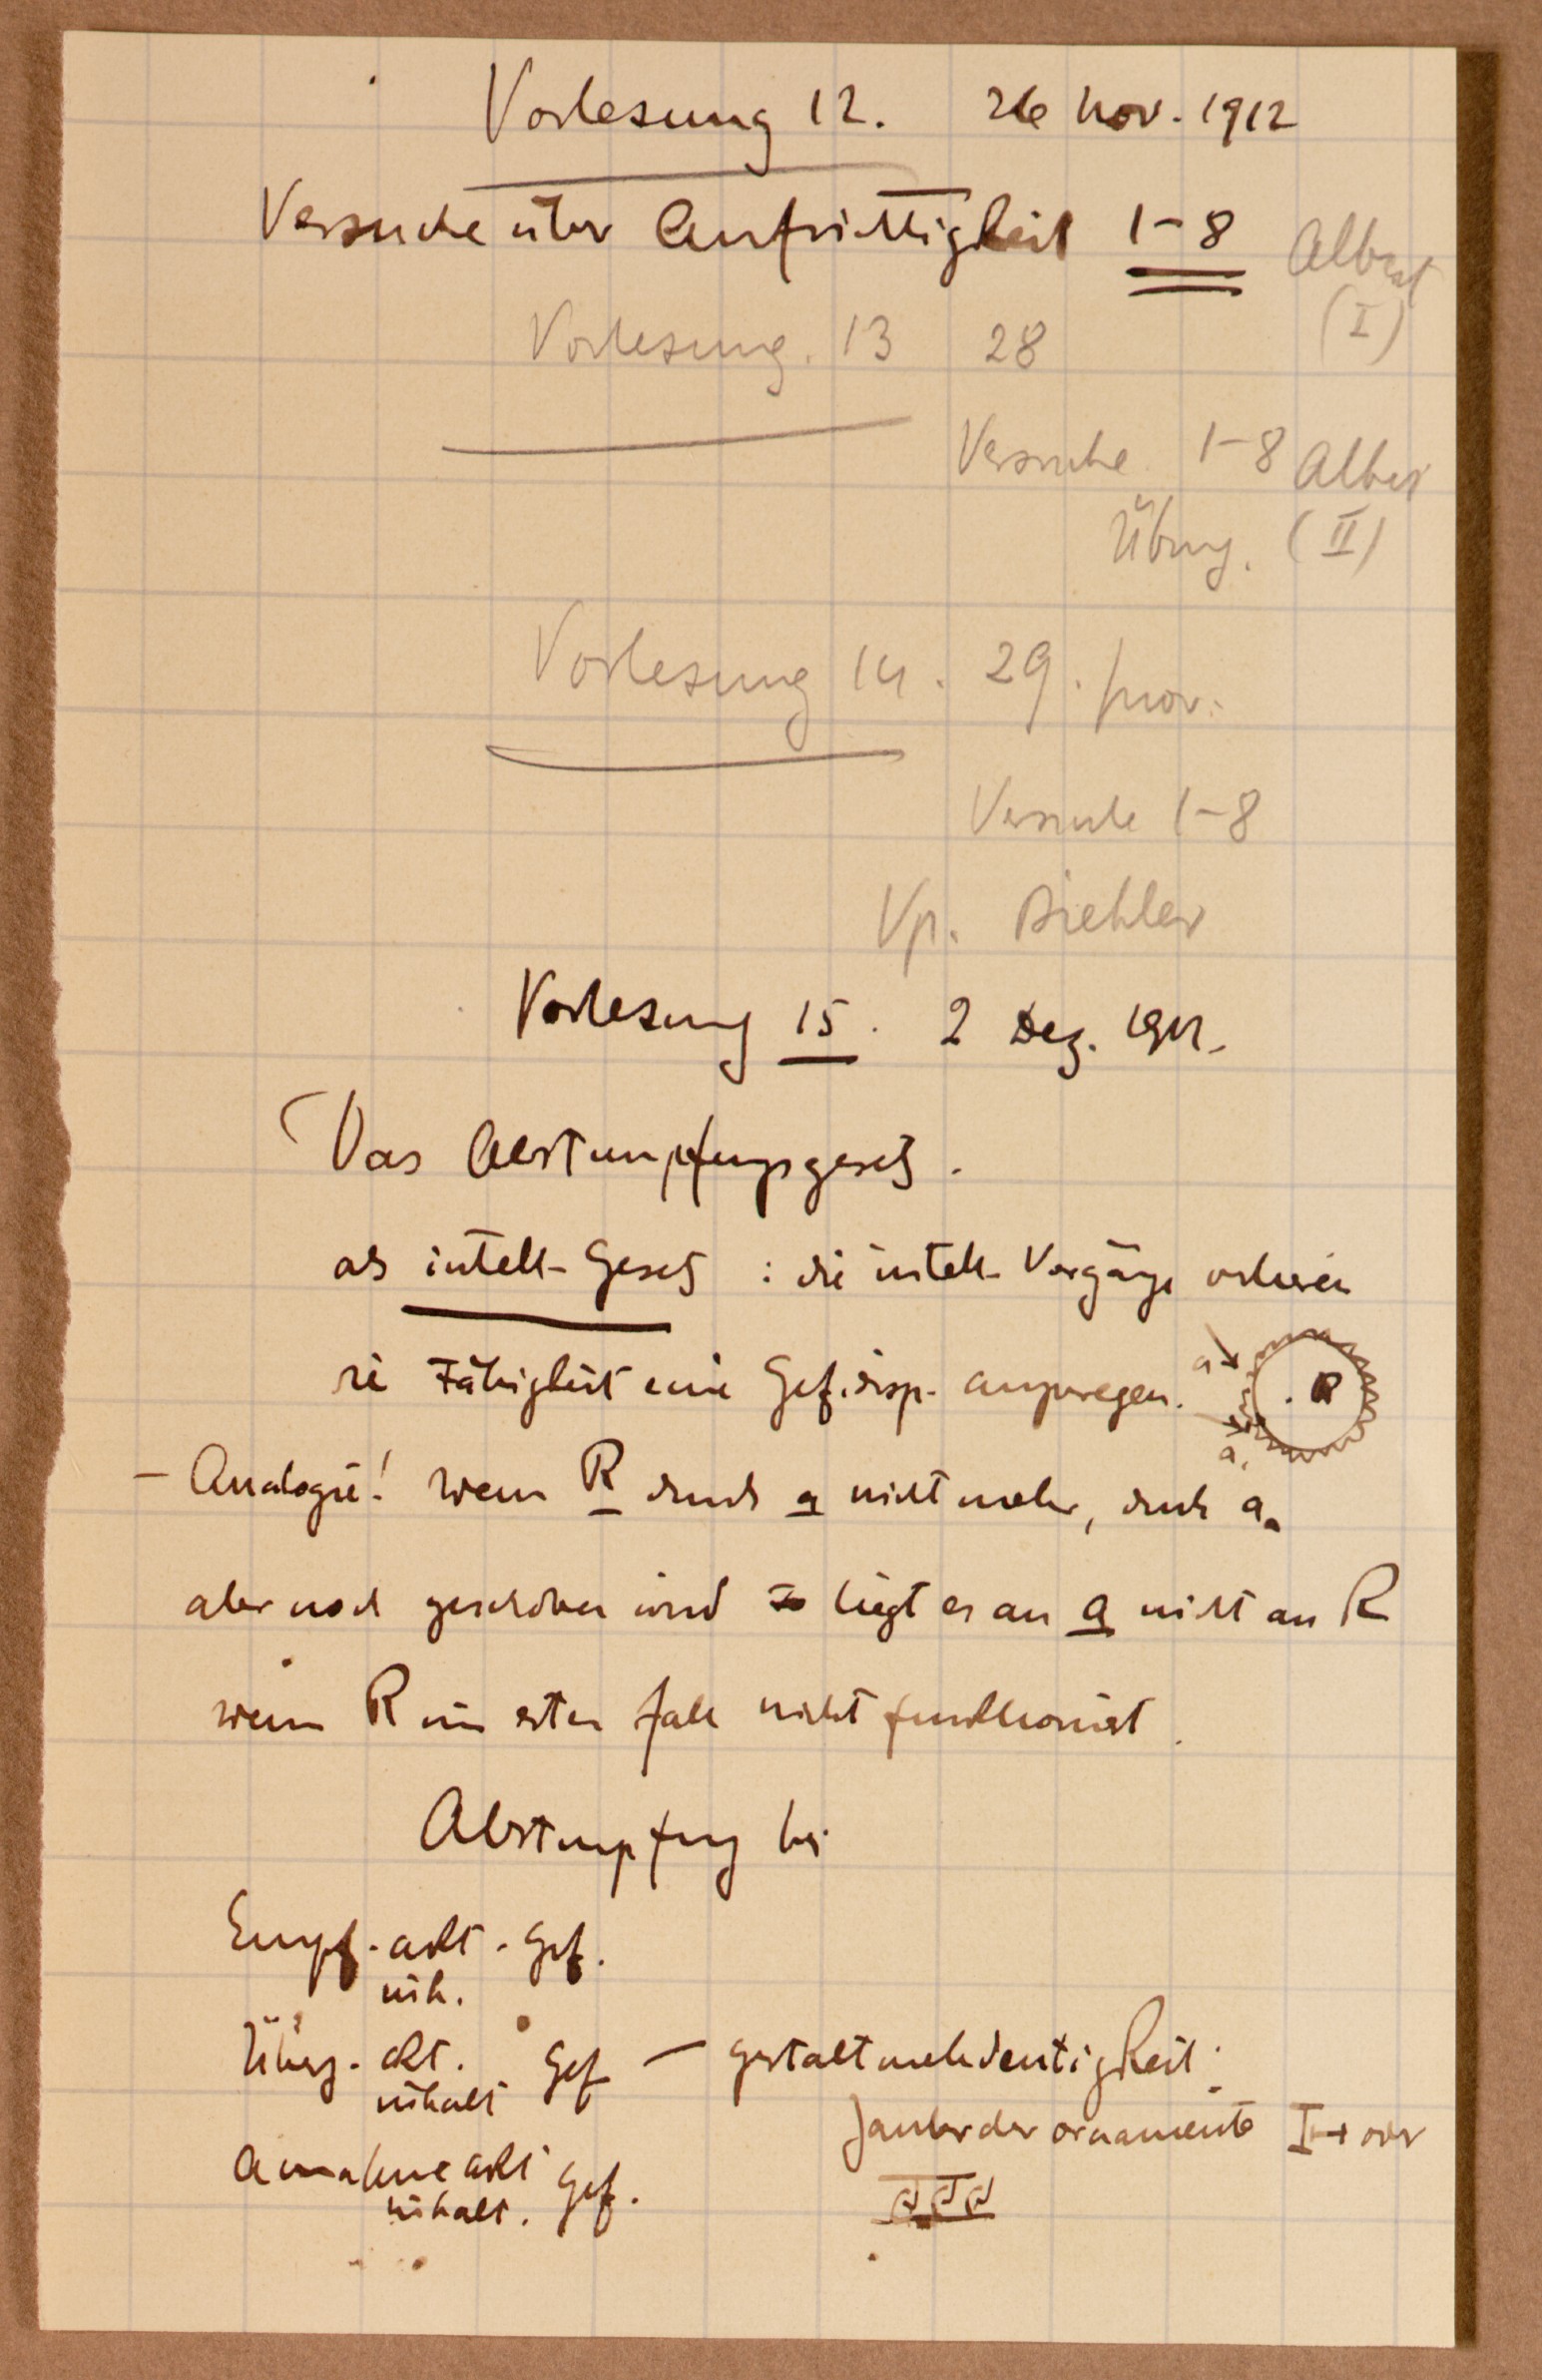 Vorlesung 12. 26 Nov. 1912
Versuche über Aufrichtigkeit 1-8
(I)
Vorlesung. 13 28
Versuche 1-8
Übung. (II)
Vorlesung 14. 29. Nov.
Versuche 1-8
Vp.
Vorlesung 15. 2 Dez. 1912.
Das Abstumpfungsgesetz.
als intell. Gesetz : die intell. Vorgänge verlieren
die Fähigkeit eine Gef.disp. anzuregen.
a R
a,
- Analogie! wenn R durch a nicht mehr, durch a,
aber noch geschoben wird so liegt es an a nicht an R
wenn R im ersten Fall nicht funktioniert.
Abstumpfung bei
Empf. akt. Gef.
inh.
Überz. akt. Gef - Gestaltmehrdeutigkeit.
inhalt
Zauber der ornamente
Annahme akt Gef.
inhalt.